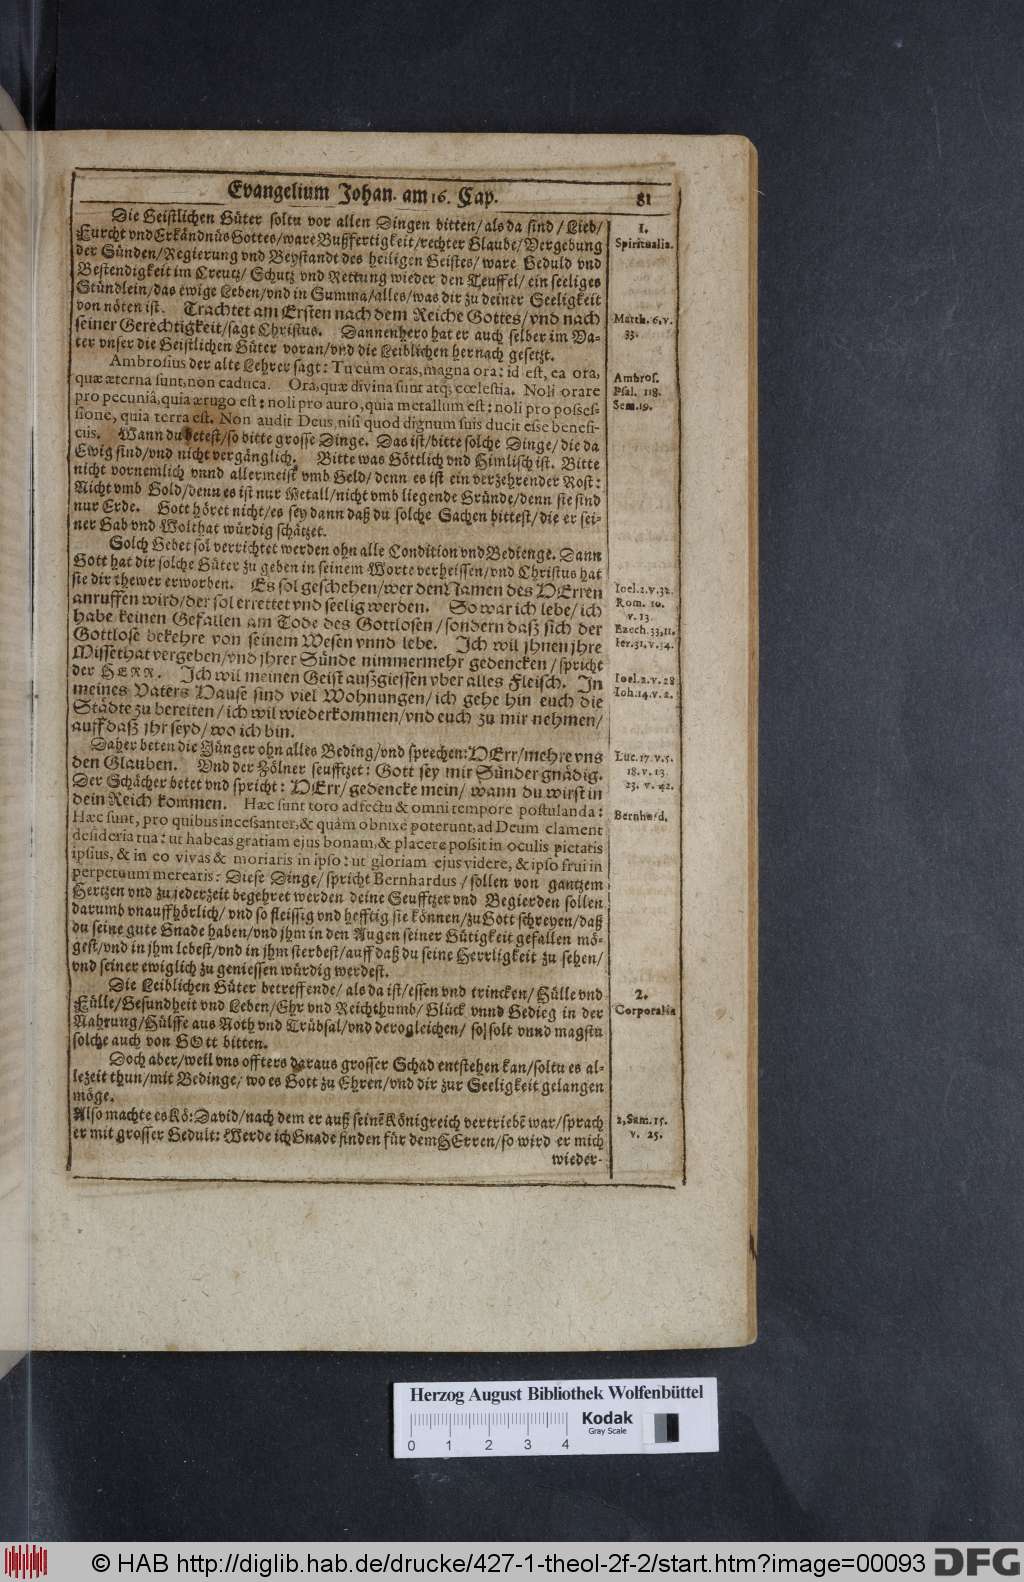 Evangelium Johan. am 16. Cap. 81
Die Geistlichen Güter soltu vor allen Dingen bitten/als da sind/Lieb/
Furcht vnd Erkändnüs Gottes/ware Bußfertigkeit/rechter Glaube/Vergebung
der Sünden/Regierung vnd Beystandt des heiligen Geistes/ware Geduld vnd
Bestendigkeit im Creutz/Schutz vnd Rettung wieder den Teuffel/ein seeliges
Stündlein/das ewige Leben/vnd in Summa/alles/was dir zu deiner Seeligkeit
von nöten ist. Trachtet am Ersten nach dem Reiche Gottes/vnd nach
seiner Gerechtigkeit/sagt Christus. Dannenhero hat er auch selber im Va-
ter vnser die Geistlichen Güter voran/vnd die Leiblichen hernach gesetzt.
Ambrosius der alte Lehrer sagt: Tu cum oras, magna ora: id est, ea ora,
quæ æterna sunt, non caduca. Ora, quæ divina sunt atq; cœlestia. Noli orare
pro pecuniâ, quia ærugo est: noli pro auro, quia metallum est: noli pro posses-
sione, quia terra est. Non audit Deus, nisi quod dignum suis ducit esse benefi-
ciis. Wann du betest/so bitte grosse Dinge. Das ist/bitte solche Dinge/die da
Ewig sind/vnd nicht vergänglich. Bitte was Göttlich vnd Himlisch ist. Bitte
nicht vornemlich vnnd allermeist vmb Geld/denn es ist ein verzehrender Rost:
Nicht vmb Gold/denn es ist nur Metall/nicht vmb liegende Gründe/denn sie sind
nur Erde. Gott höret nicht/es sey dann daß du solche Sachen bittest/die er sei-
ner Gab vnd Wolthat würdig schätzet.
Solch Gebet sol verrichtet werden ohn alle Condition vnd Bedienge. Dann
Gott hat dir solche Güter zu geben in seinem Worte verheissen/vnd Christus hat
sie dir thewer erworben. Es sol geschehen/wer den Namen des HErren
anruffen wird/der sol errettet vnd seelig werden. So war ich lebe/ich
habe keinen Gefallen am Tode des Gottlosen/sondern daß sich der
Gottlose bekehre von seinem Wesen vnnd lebe. Ich wil jhnen jhre
Missethat vergeben/vnd jhrer Sünde nimmermehr gedencken/spricht
der HERR. Ich wil meinen Geist außgiessen vber alles Fleisch. In
meines Vaters Hause sind viel Wohnungen/ich gehe hin euch die
Städte zu bereiten/ich wil wiederkommen/vnd euch zu mir nehmen/
auff daß jhr seyd/wo ich bin.
Daher beten die Jünger ohn alles Beding/vnd sprechen: HErr/mehre vns
den Glauben. Vnd der Zölner seufftzet: Gott sey mir Sünder gnädig.
Der Schächer betet vnd spricht: HErr/gedencke mein/wann du wirst in
dein Reich kommen. Hæc sunt toto adfectu & omni tempore postulanda:
Hæc sunt, pro quibus incessanter, & quàm obnixè poterunt, ad Deum clament
desideria tua: ut habeas gratiam ejus bonam, & placere possit in oculis pietatis
ipsius, & in eo vivas & moriaris in ipso: ut gloriam ejus videre, & ipso frui in
perpetuum merearis: Diese Dinge/spricht Bernhardus/sollen von gantzem
Hertzen vnd zu jederzeit begehret werden deine Seufftzer vnd Begierden sollen
darumb vnauffhörlich/vnd so fleissig vnd hefftig sie können/zu Gott schreyen/daß
du seine gute Gnade haben/vnd jhm in den Augen seiner Gütigkeit gefallen mö-
gest/vnd in jhm lebest/vnd in jhm sterbest/auff daß du seine Herrligkeit zu sehen/
vnd seiner ewiglich zu geniessen würdig werdest.
Die Leiblichen Güter betreffende/als da ist/essen vnd trincken/Hülle vnd
Fülle/Gesundheit vnd Leben/Ehr vnd Reichthumb/Glück vnnd Gedieg in der
Nahrung/Hülffe aus Noth vnd Trübsal/vnd derogleichen/so solt vnnd magstu
solche auch von GOtt bitten.
Doch aber/weil vns offters daraus grosser Schad entstehen kan/soltu es al-
lezeit thun/mit Bedinge/wo es Gott zu Ehren/vnd dir zur Seeligkeit gelangen
möge.
Also machte es Kö: David/nach dem er auß seinē Königreich vertriebē war/sprach
er mit grosser Gedult: Werde ich Gnade finden für dem HErren/so wird er mich
wieder-
1.
Spiritualia.
Matth. 6. v.
33.
Ambros.
Psal. 118.
Sem. 19.
Ioel. 2. v. 32.
Rom. 10.
v. 13.
Ezech. 33, 11.
Ier. 31. v. 34.
Ioel. 2. v. 28
Ioh. 14. v. 2.
Luc. 17. v. 5.
18. v. 13.
23. v. 42.
Bernhard.
2.
Corporalia
2, Sam. 15.
v. 25.
Herzog August Bibliothek Wolfenbüttel
Kodak
Gray Scale
0 1 2 3 4
© HAB http://diglib.hab.de/drucke/427-1-theol-2f-2/start.htm?image=00093 DFG